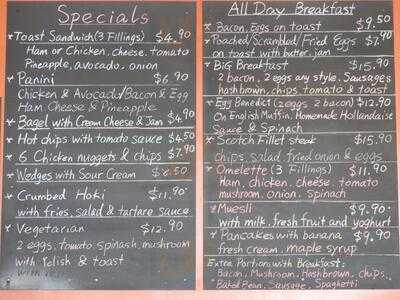 Specials
Toast Sandwich (3 Fillings) $4.90
Ham or Chicken, cheese, tomato
Pineapple, avocado, onion
Panini $6.90
Chicken & Avocado/Bacon & Egg
Ham, Cheese & Pineapple
Bagel with Cream Cheese & Jam $4.90
Hot chips with tomato sauce $4.50
6 Chicken nuggets & chips $7.90
Wedges with Sour Cream $6.50
Crumbed Hoki $11.90
with fries, salad & tartare sauce
Vegetarian $12.90
2 eggs, tomato, spinach, mushroom
with relish & toast
All Day Breakfast
Bacon, Eggs on toast $9.50
Poached/Scrambled/Fried Eggs $7.90
on toast with butter, jam
BiG Breakfast $15.90
2 bacon, 2 eggs any style, Sausages
hashbrown, chips, tomato & toast
Egg Benedict (2 eggs 2 bacon) $12.90
On English Muffin, Homemade Hollandaise
Sauce & Spinach
Scotch Fillet steak $15.90
chips, salad, fried onion & eggs
Omelette (3 Fillings) $11.90
Ham, chicken, cheese, tomato
mushroom, onion, spinach
Muesli $9.90
with milk, fresh fruit and yoghurt
Pancakes with banana $9.90
fresh cream, maple syrup
Extra Portion with Breakfast:
Bacon, Mushroom, Hashbrown, chips,
Baked Bean, Sausage, Spaghetti